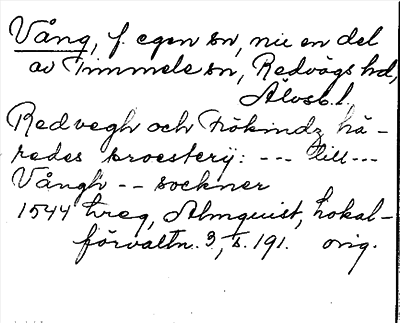 Vång, f. egen sn, nu en del
av Timmele sn, Redvägs hd,
Älvsb. l.
Redvegh och Frökindz hä-
redes proesterij: --- till---
Vångh -- sockner
1544 hreg, Almquist, Lokal-
förvaltn. 3, s. 191. orig.